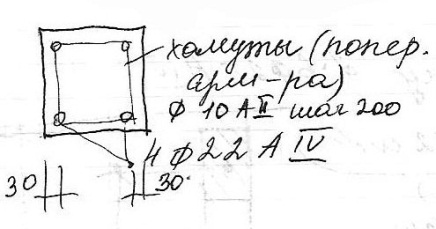 хомуты (попер.
арм-ра)
ϕ 10 А II шаг 200
4 ϕ 22 А IV
30 30